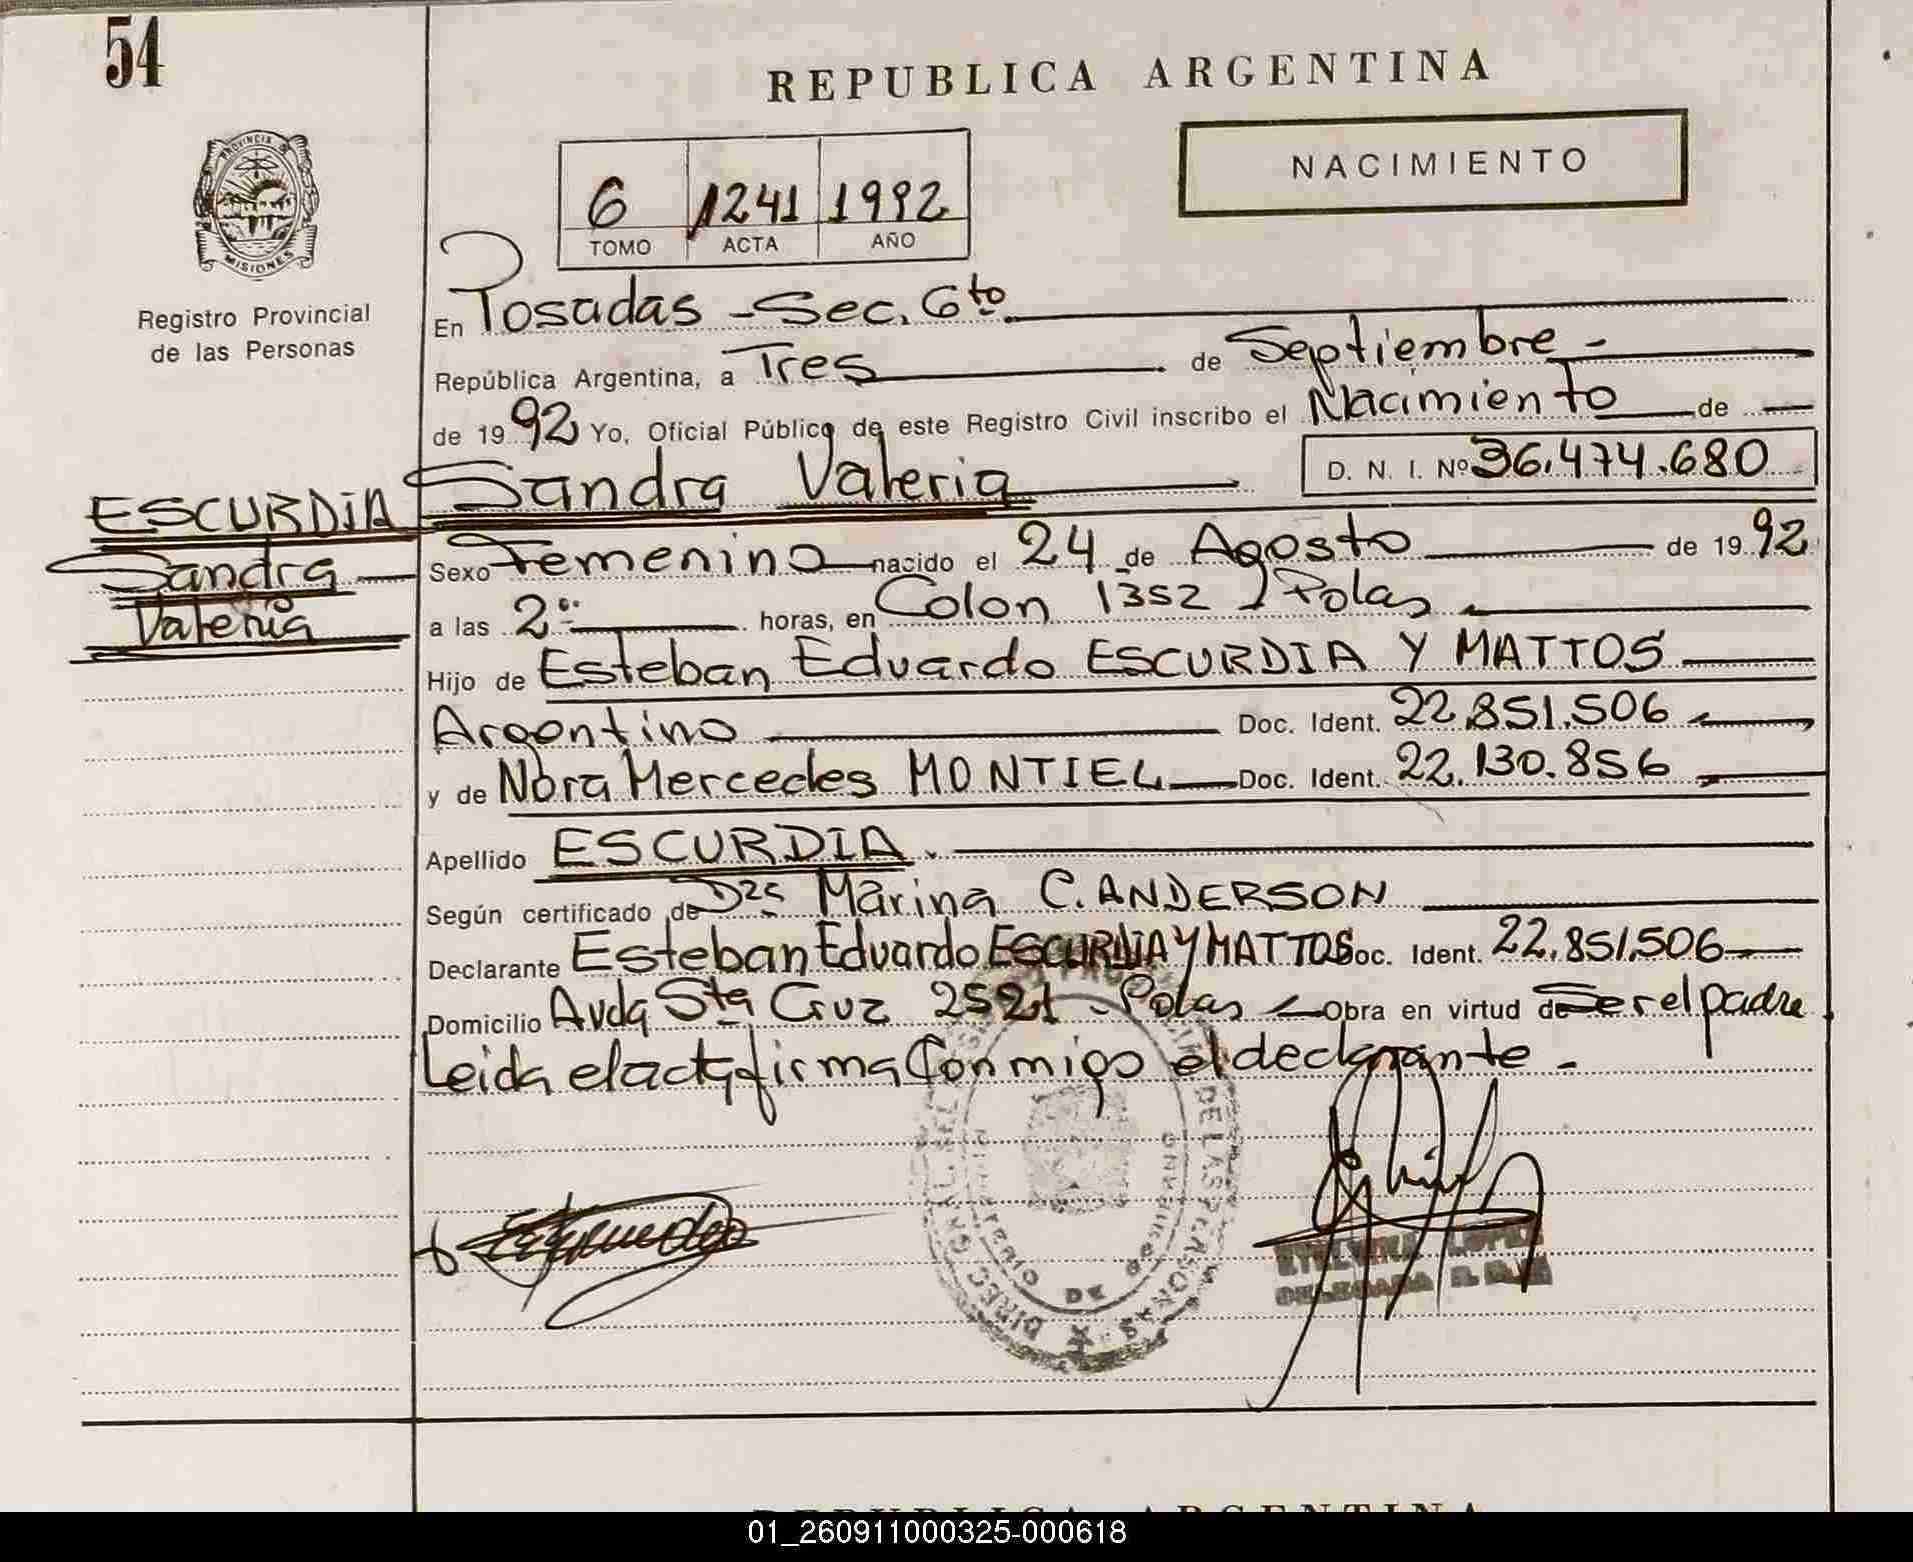 54
REPUBLICA ARGENTINA
NACIMIENTO
PROVINCIA
MISIONES
6 1241 1992
TOMO ACTA AÑO
Registro Provincial
de las Personas
En Posadas - Sec. 6to
República Argentina, a Tres de Septiembre -
de 1992 Yo, Oficial Público de este Registro Civil inscribo el Nacimiento de
Sandra Valeria D. N. I. Nº 36.474.680
ESCURDIA
Sandra
Valeria
Sexo Femenino nacido el 24 de Agosto de 1992
a las 2 horas, en Colon 1352 Pdas
Hijo de Esteban Eduardo ESCURDIA Y MATTOS
Argentino Doc. Ident. 22.851.506
y de Nora Mercedes MONTIEL Doc. Ident. 22.130.856
Apellido ESCURDIA.
Según certificado de Marina C. ANDERSON
Declarante Esteban Eduardo ESCURDIA Y MATTOS Doc. Ident. 22.851.506
Domicilio Avda Sta Cruz 2521 - Pdas Obra en virtud de Ser el padre
Leida el acta firma Conmigo el declarante -
DE LAS PERSONAS
DE
LOPEZ
REPUBLICA ARGENTINA
01_260911000325-000618